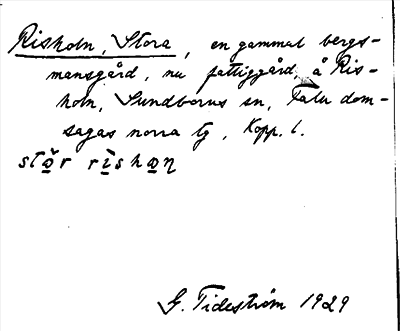 Risholn, Stora, en gammal bergs-
mansgård, nu fattiggård, å Ris-
holn, Sundborns sn, Falu dom-
sagas norra tg, Kopp. l.
G. Tideström 1929